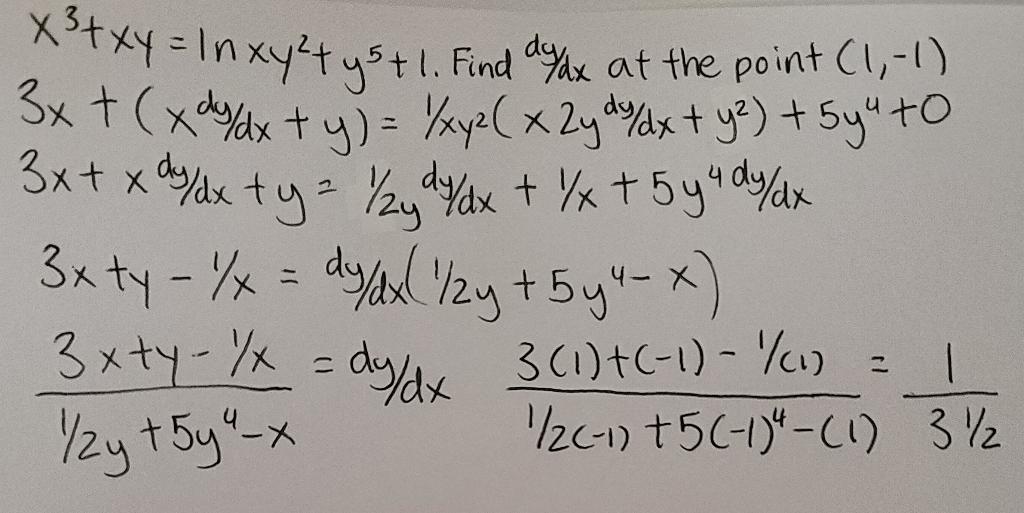 x³+xy = ln xy²+y⁵+1. Find dy/dx at the point (1,-1)
3x + (x dy/dx + y) = 1/xy² (x 2y dy/dx + y²) + 5y⁴ + 0
3x + x dy/dx + y = 1/2y dy/dx + 1/x + 5y⁴ dy/dx
3x + y - 1/x = dy/dx (1/2y + 5y⁴ - x)
(3x+y-1/x)/(1/2y+5y⁴-x) = dy/dx    (3(1)+(-1)-1/(1))/(1/2(-1)+5(-1)⁴-(1)) = 1/(3 1/2)